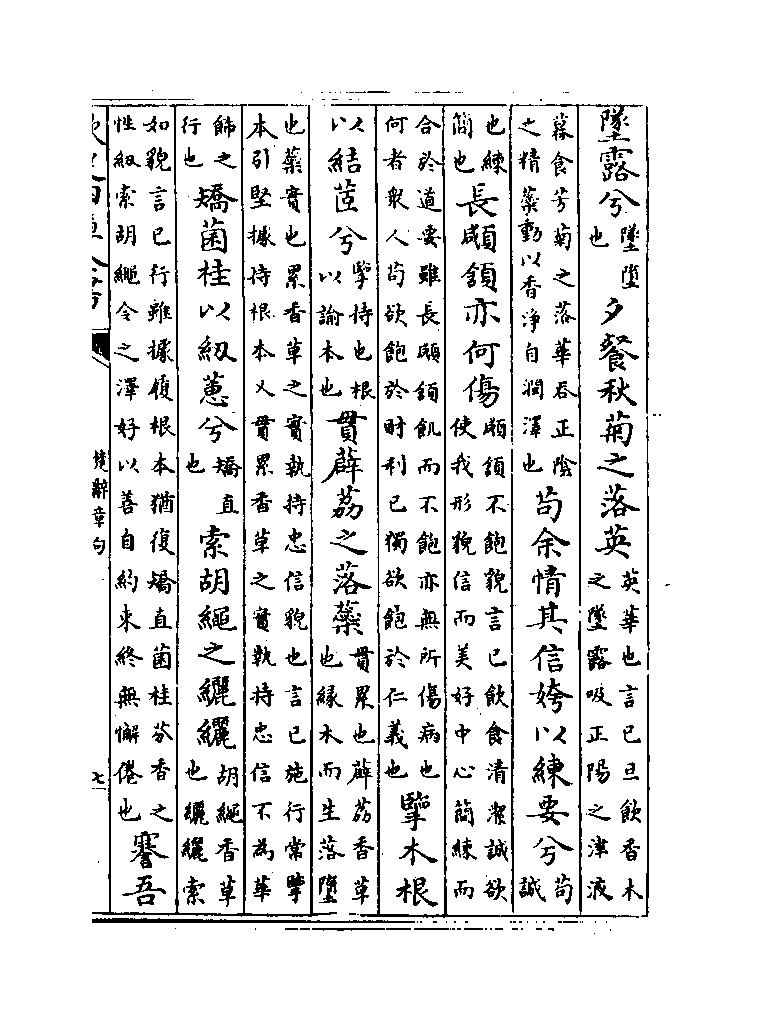 墜露兮墜墮也夕餐秋菊之落英英華也言已旦飲香木之墜露吸正陽之津液
暮食芳菊之落華吞正陰之精蘂動以香淨自潤澤也苟余情其信姱以練要兮苟誠
也練簡也長顑頷亦何傷顑頷不飽貌言已飲食清潔誠欲使我形貌信而美好中心簡練而
合於道要雖長顑頷飢而不飽亦無所傷病也何者衆人苟欲飽於財利已獨欲飽於仁義也擥木根
以結茝兮擥持也根以諭本也貫薜荔之落蘂貫累也薜荔香草也縁木而生落墮
也蘂實也累香草之實執持忠信貌也言已施行常擥本引堅據持根本又貫累香草之實執持忠信不為華
飾之行也矯菌桂以紉蕙兮矯直也索胡繩之纚纚胡繩香草也纚纚索
如貌言已行雖據履根本猶復矯直菌桂芬香之性紉索胡繩令之澤好以善自約束終無懈倦也謇吾
楚辭章句
七